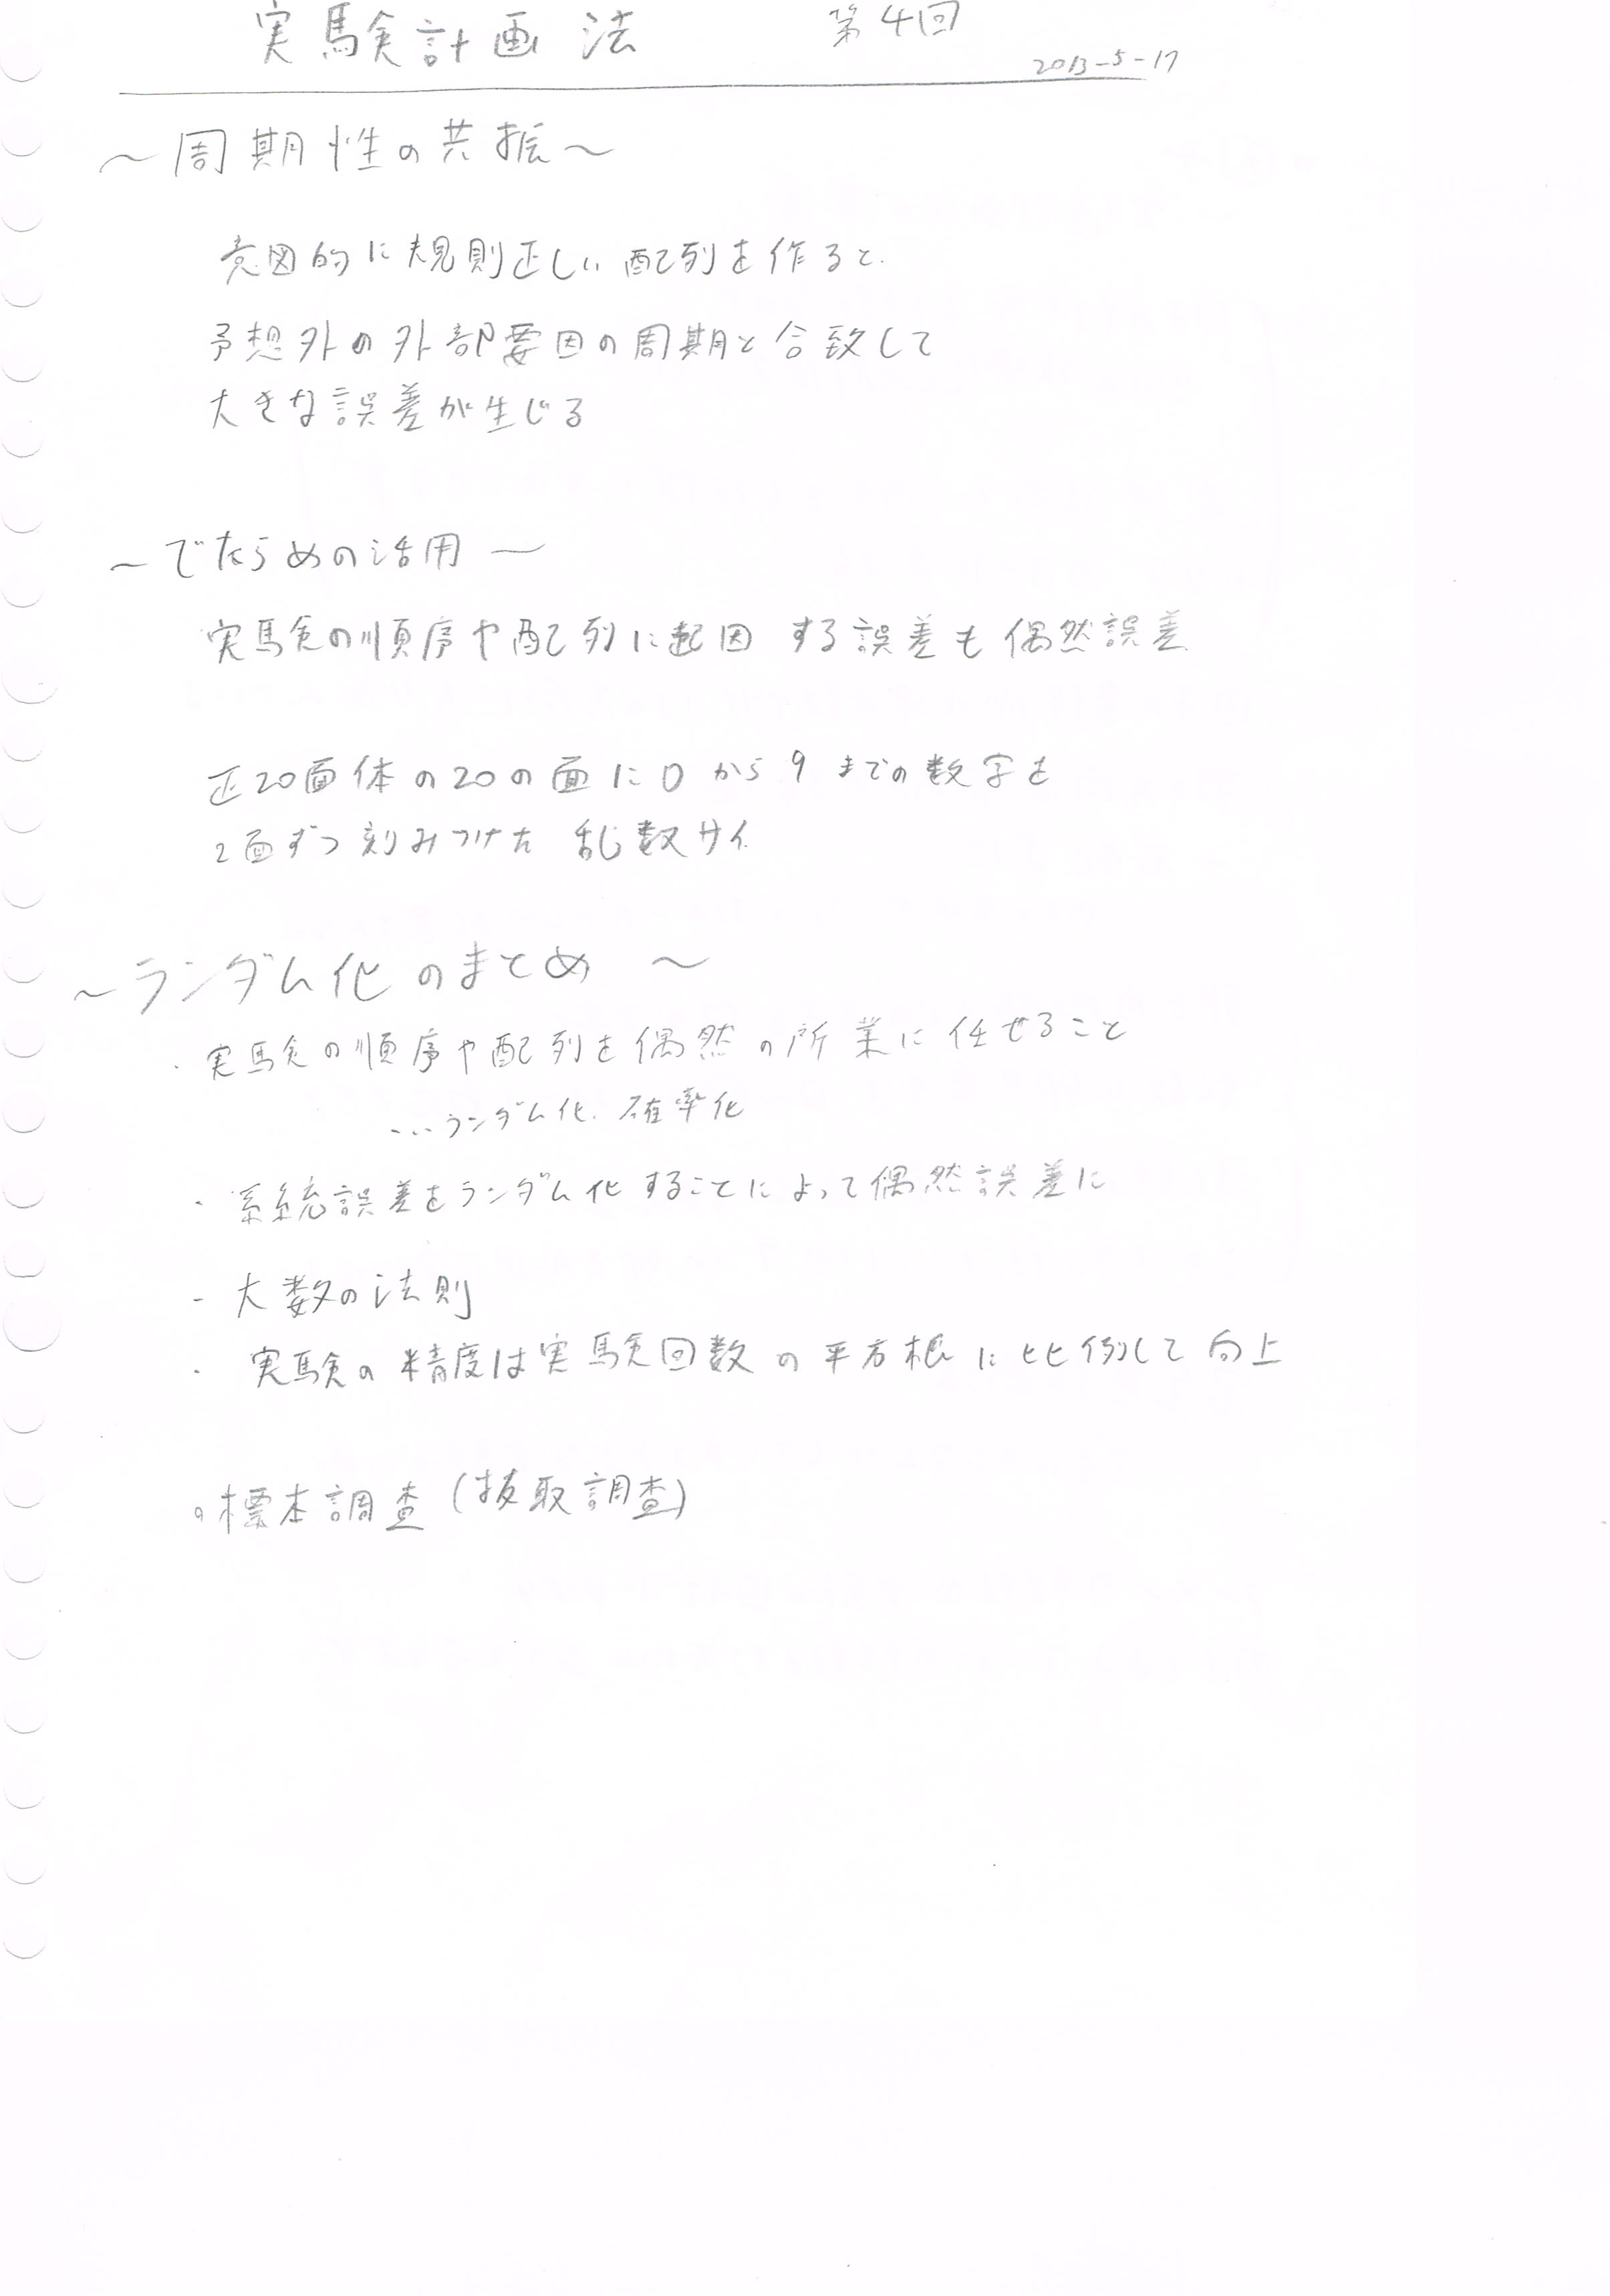 実験計画法 第4回
2013-5-17
～周期性の共振～
意図的に規則正しい配列を作ると、
予想外の外部要因の周期と合致して
大きな誤差が生じる
～でたらめの活用～
実験の順序や配列に起因する誤差も偶然誤差
正20面体の20の面に0から9までの数字を
2面ずつ刻みつけた乱数サイ
～ランダム化のまとめ～
・実験の順序や配列を偶然の所業に任せること
…ランダム化、確率化
・系統誤差をランダム化することによって偶然誤差に
- 大数の法則
・実験の精度は実験回数の平方根に比例して向上
○標本調査(抜取調査)